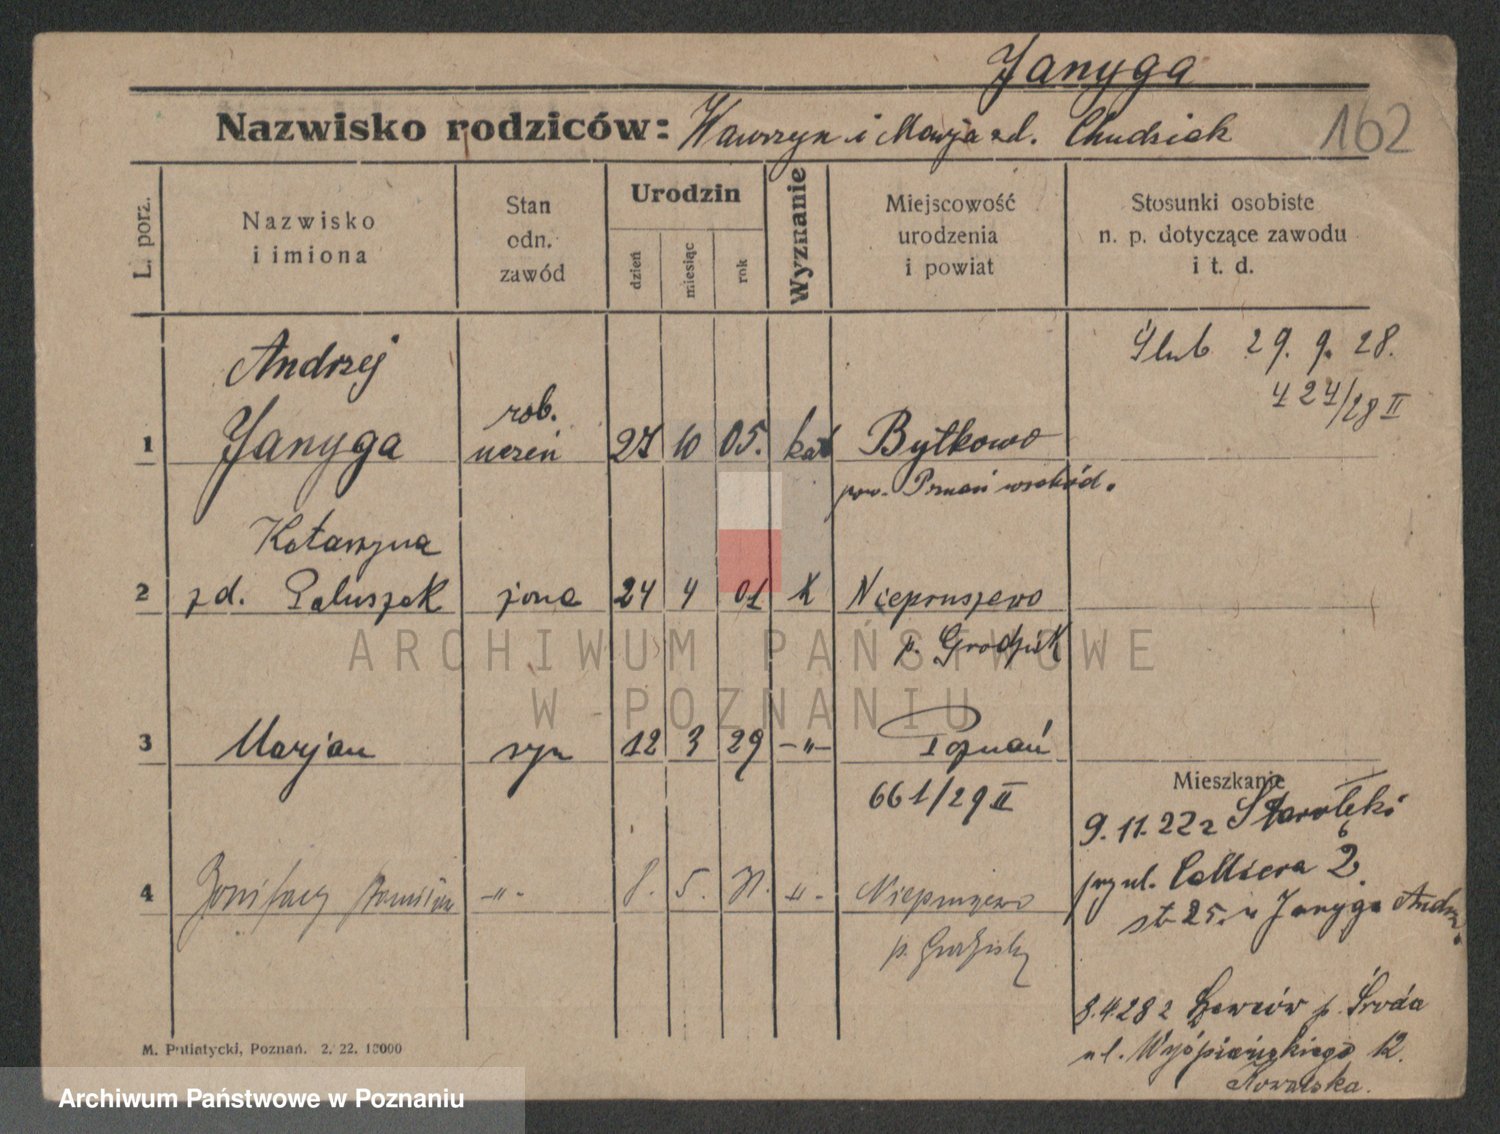 Janyga
Nazwisko rodziców: Wawrzyn i Marja zd. Chudziak
162
L. porz.
Nazwisko i imiona
Stan odn. zawód
Urodzin
dzień
miesiąc
rok
Wyznanie
Miejscowość urodzenia i powiat
Stosunki osobiste n. p. dotyczące zawodu i t. d.
Ślub 29. 9. 28.
424/28 II
Andrzej
rob.
1 Janyga uczeń 27 10 05. kat Bytkowo
pow. Poznań wschód.
Katarzyna
2 zd. Paluszak żona 24 4 01 k Niepruszewo
p. Grodzisk
ARCHIWUM PAŃSTWOWE
W POZNANIU
3 Marjan syn 12 3 29 -"- Poznań
661/29 II
Mieszkanie
9.11.22 z Starołęki
6
przy ul. Calliera 2
4 Bonifacy Stanisław -"- 8. 5. 31. -"- Niepruszewo
st. 25. u Janyga Andrz.
p. Grodzisk
8.4.28 z p. Środa
ul. Wyspiańskiego 12.
Kowalska.
M. Putiatycki, Poznań. 2. 22. 10000
Archiwum Państwowe w Poznaniu